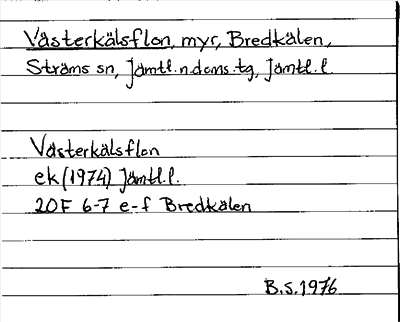 Västerkälsflon, myr, Bredkälen,
Ströms sn, Jämtl.n.doms.tg, Jämtl.l.
Västerkälsflon
ek (1974) Jämtl.l.
20F 6-7 e-f Bredkälen
B.S.1976